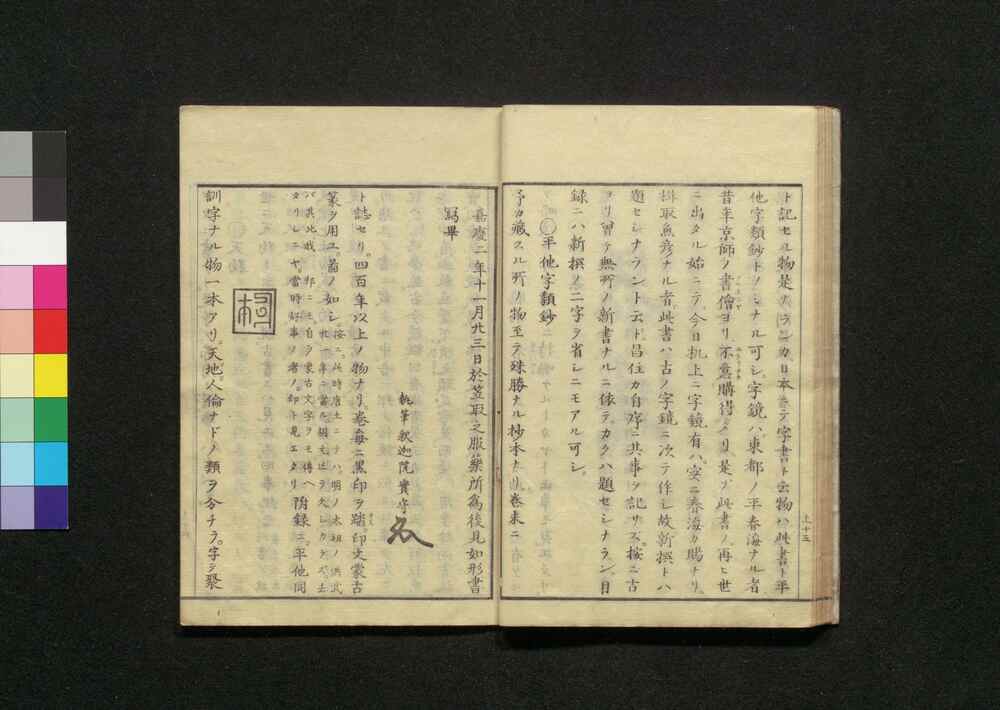 ト記セル物是ナランカ日本ニテ字書ト云物ハ此書ト平
他字類鈔トノミナル可シ字鏡ハ東都ノ平春海ナル者
昔年京師ノ書僧ヨリ不意購得タリ是ゾ此書ノ再ヒ世
ニ出タル始ニテ今日机上ニ字鏡有ハ実ニ春海カ賜ナリ
楫取魚彦ナル者此書ハ古ノ字鏡ニ次テ作シ故新撰トハ
題セシナラント云ト昌住カ自序ニ其事ヲ記サズ按ニ古
ヨリ曽テ無所ノ新書ナルニ依テカクハ題セシナラン目
録ニハ新撰ノ二字ヲ省シニモアル可シ
平他字類鈔
予カ藏スル所ノ物至テ殊勝ナル抄本ナリ卷末ニ
上十五
嘉慶二年十一月廿三日於笠取之服藥所為後見如形書
寫畢
執筆釈迦院實守
ト誌セリ四百年以上ノ物ナリ卷毎ニ黒印ヲ踏印文蒙古
篆ヲ用ユ茴ノ如シ按ニ此時唐土ニテハ明ノ太祖ノ洪武
バ其比我邦ニモ自ラ蒙古文字ヲモ傳ヘ
タリシニヤ當時好事ノ者ノ印ト見エタリ附録ニ平他同
訓字ナル物一本アリ天地人倫ナドノ類ヲ分チテ字ヲ聚